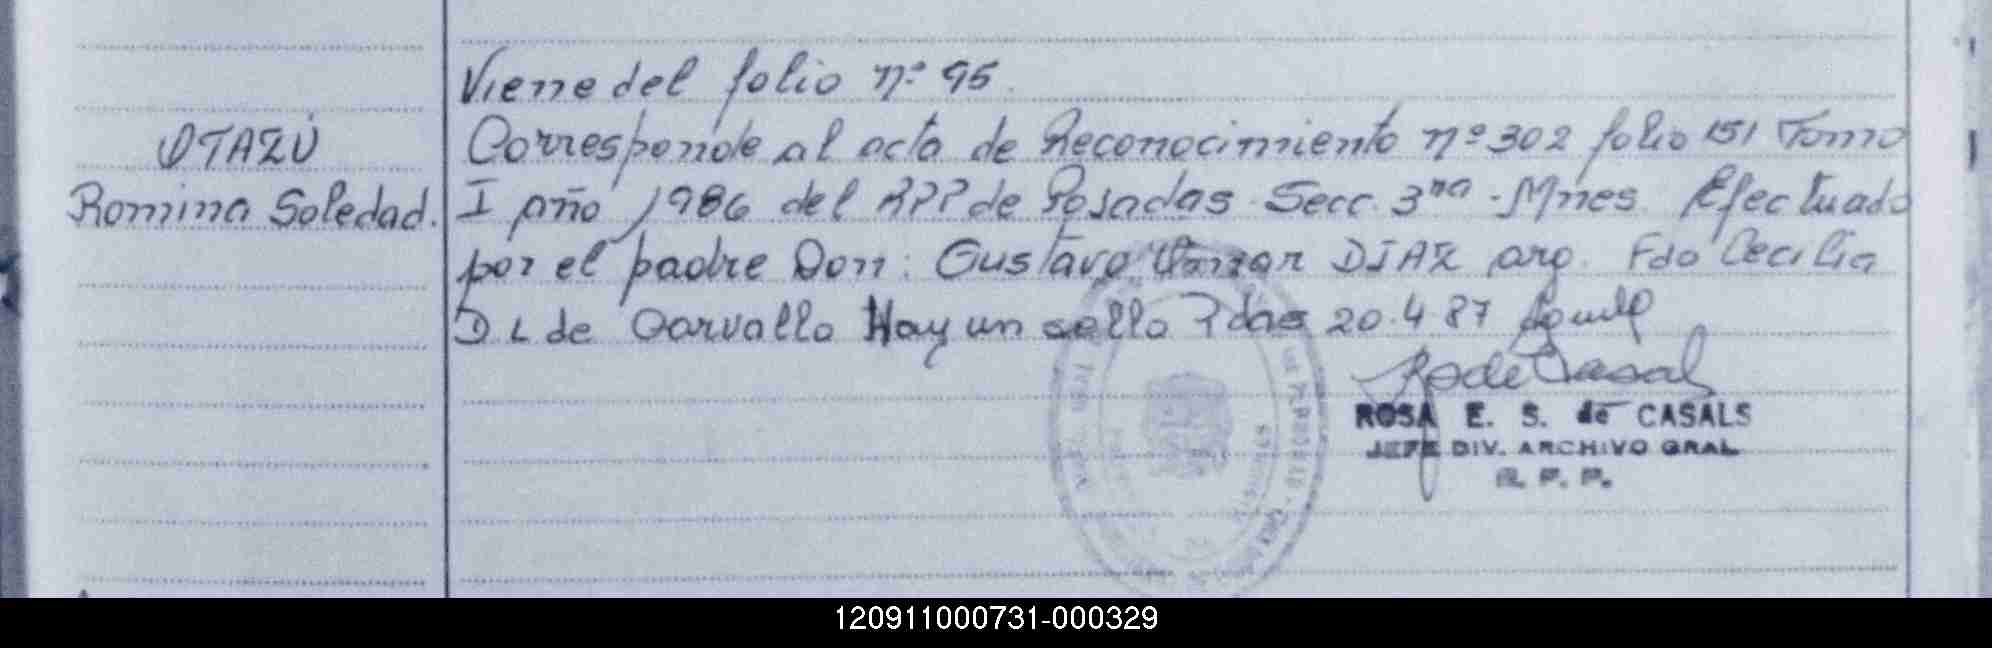 Viene del folio nº 95.
OTAZÚ
Romina Soledad.
Corresponde al acta de Reconocimiento nº 302 folio 151 Tomo
I año 1986 del RPP de Posadas Secc. 3ra - Mnes. Efectuado
por el padre Don: Gustavo Omar DIAZ arg. Fdo Cecilia
D L de Carvallo Hay un sello Pdas 20.4.87
ROSA E. S. de CASALS
JEFE DIV. ARCHIVO GRAL
R. P. P.
120911000731-000329